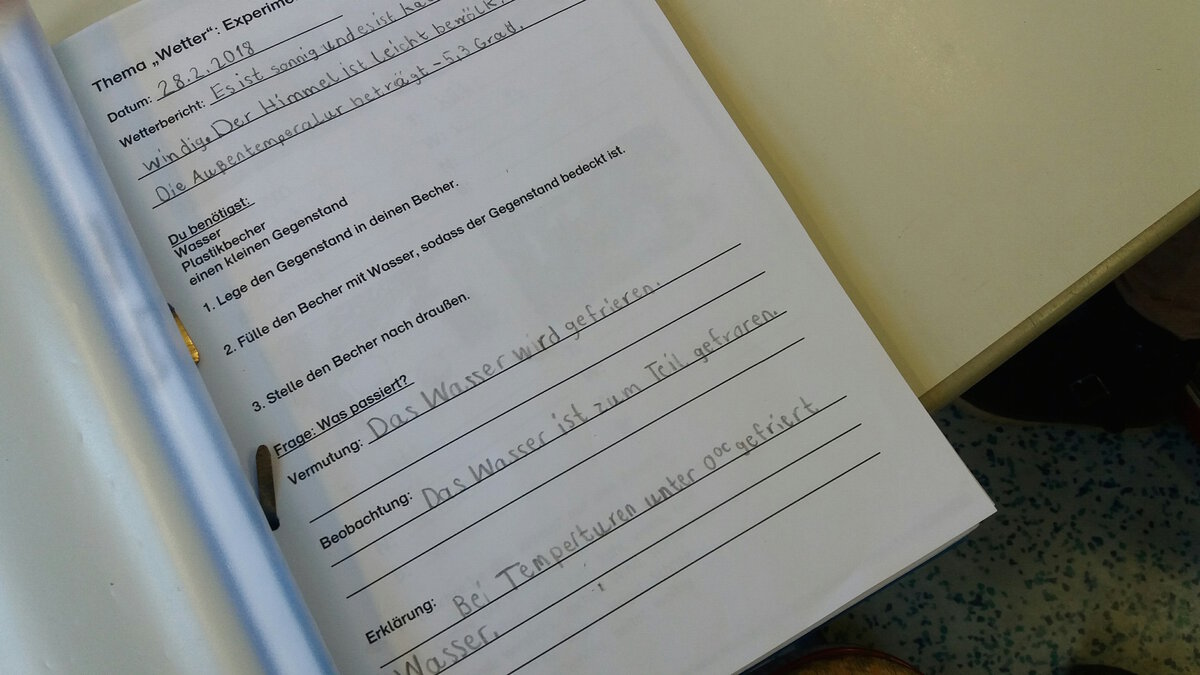 Thema „Wetter“:
Datum: 28.2.2018
Wetterbericht: Es ist sonnig und es ist
windig. Der Himmel ist leicht bewölk
Die Außentemperatur beträgt -5,3 Grad.
Du benötigst:
Wasser
Plastikbecher
einen kleinen Gegenstand
1. Lege den Gegenstand in deinen Becher.
2. Fülle den Becher mit Wasser, sodass der Gegenstand bedeckt ist.
3. Stelle den Becher nach draußen.
Frage: Was passiert?
Vermutung: Das Wasser wird gefrieren.
Beobachtung: Das Wasser ist zum Teil gefraren.
Erklärung: Bei Temperturen unter 0°C gefriert
Wasser.